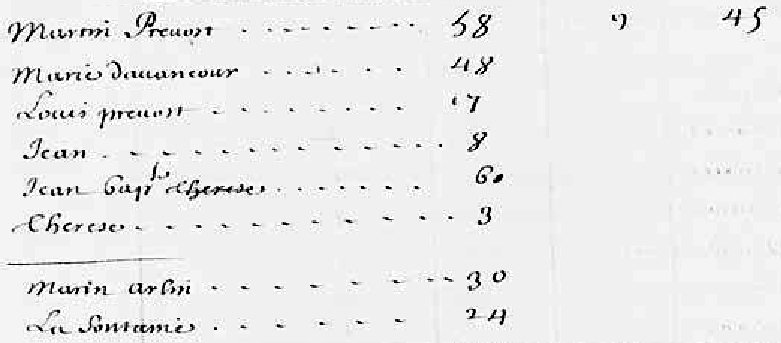 Martin Prevost . . . . . . . . 58 7 45
Marie davancour . . . . . . 48
Louis prevost . . . . . . . . 17
Jean . . . . . . . . . . . . 8
Jean bapte Therese . . . . . . . 6
Therese . . . . . . . . . . . 3
Marin . . . . . . . . 30
La fontaine . . . . . . 24